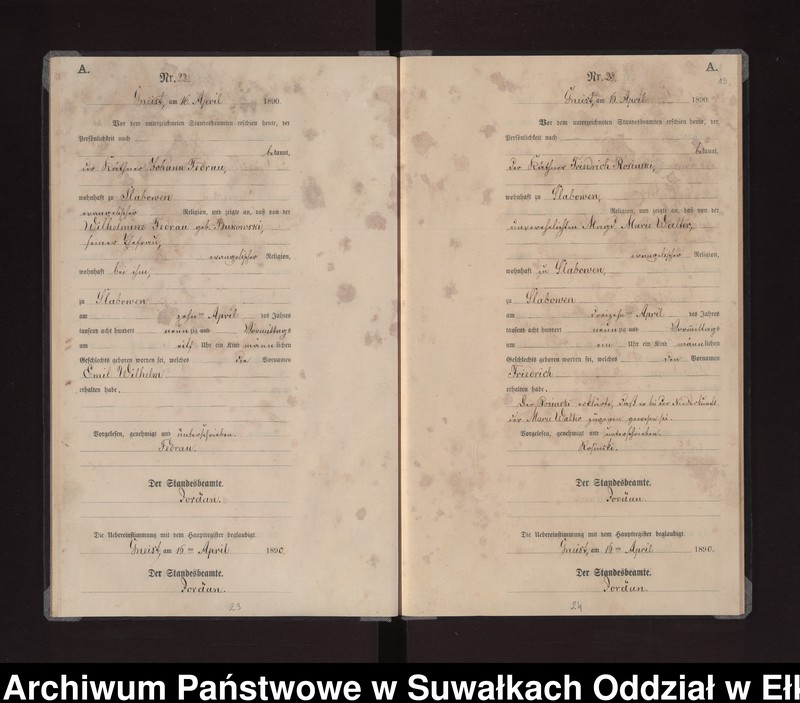 A.
Nr. 22.
Gneist, am 16. April 1890.
Vor dem unterzeichneten Standesbeamten erschien heute, der
Persönlichkeit nach
bekannt,
der Käthner Johann Fedrau,
wohnhaft zu Slabowen
evangelischer Religion, und zeigte an, daß von der
Wilhelmine Fedrau geb. Bukowski,
seiner Ehefrau,
evangelischer Religion,
wohnhaft bei ihm,
zu Slabowen
am zehnten April des Jahres
tausend acht hundert neunzig und Vormittags
um elf Uhr ein Kind männlichen
Geschlechts geboren worden sei, welches die Vornamen
Emil Wilhelm
erhalten habe.
Vorgelesen, genehmigt und unterschrieben.
Fedrau.
Der Standesbeamte.
Jordan.
Die Uebereinstimmung mit dem Hauptregister beglaubigt.
Gneist, am 16ten April 1890.
Der Standesbeamte.
Jordan.
23
A.
Nr. 23.
Gneist, am 16. April 1890.
Vor dem unterzeichneten Standesbeamten erschien heute, der
Persönlichkeit nach
bekannt,
der Käthner Friedrich Rosinski,
wohnhaft zu Slabowen,
Religion, und zeigte an, daß von der
unverehelichten Magd Marie Walter,
evangelischer Religion,
wohnhaft zu Slabowen,
zu Slabowen
am dreizehnten April des Jahres
tausend acht hundert neunzig und Vormittags
um ein Uhr ein Kind männlichen
Geschlechts geboren worden sei, welches den Vornamen
Friedrich
erhalten habe.
Der Rosinski erklärte, daß er bei der Niederkunft
der Marie Walter zugegen gewesen sei.
Vorgelesen, genehmigt und unterschrieben.
Rosinski.
Der Standesbeamte.
Jordan.
Die Uebereinstimmung mit dem Hauptregister beglaubigt.
Gneist, am 16ten April 1890.
Der Standesbeamte.
Jordan.
24
Archiwum Państwowe w Suwałkach Oddział w Ełk